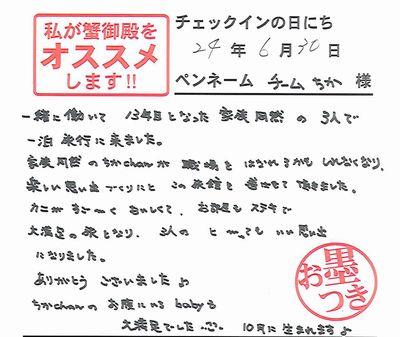 私が蟹御殿を
オススメ
します!!
チェックインの日にち
24年6月30日
ペンネーム チームちか 様
一緒に働いて 13年目となった 家族同然 の 3人で
一泊 旅行に来ました。
家族同然 のちかchanが 職場と はなれるかも しれなくなり、
楽しい思い出 づくりにと この旅館を 選ばせて 頂きました。
カニが すご〜く おいしくて、お部屋も ステキで
大満足の 旅となり、3人の と〜っても いい思い出
になりました。
ありがとう ございました♪
ちかchanの お腹にいる babyも
大満足でした 10月に生まれます♪
お墨つき